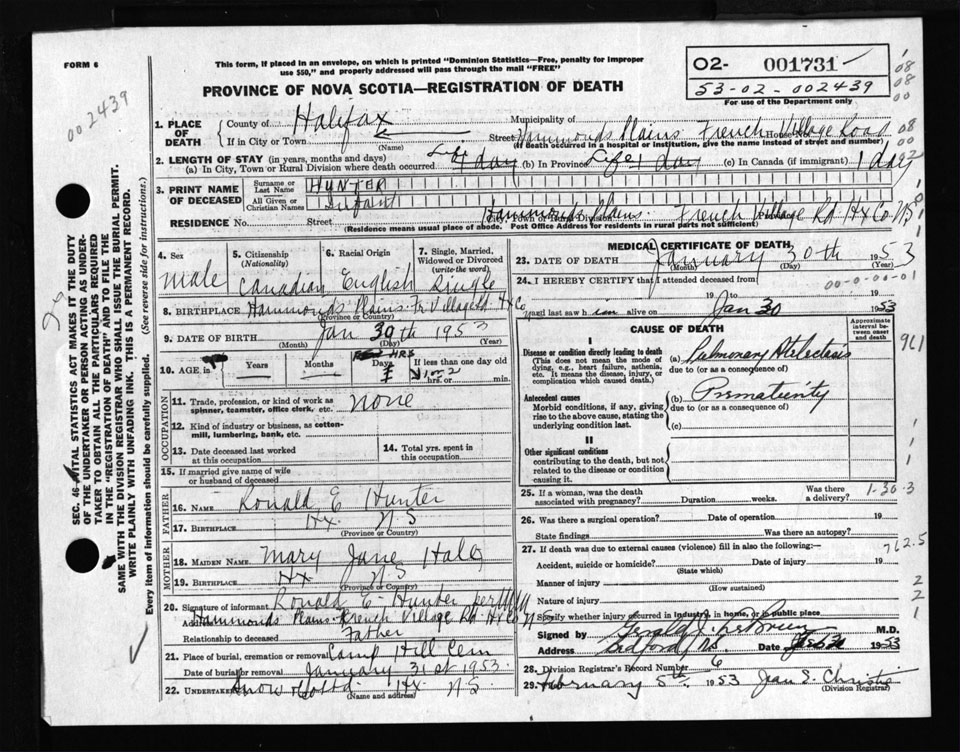 FORM 6
This form, if placed in an envelope, on which is printed "Dominion Statistics—Free, penalty for improper
use $50," and properly addressed will pass through the mail "FREE"
O2- 001731
53-02-002439
For use of the Department only
002439
PROVINCE OF NOVA SCOTIA—REGISTRATION OF DEATH
1. PLACE OF DEATH
County of Halifax Municipality of
If in City or Town (Name) Street Hammonds Plains French Village Road House No.
(If death occurred in a hospital or institution, give the name instead of street and number)
2. LENGTH OF STAY (in years, months and days)
(a) In City, Town or Rural Division where death occurred 1 day (b) In Province Life 1 day (c) In Canada (if immigrant) 1 day
3. PRINT NAME OF DECEASED
Surname or Last Name HUNTER
All Given or Christian Names Infant
RESIDENCE No. Street Hammonds Plains French Village Rd Hx Co NS
City, Town or Rural Division Province
(Residence means usual place of abode. Post Office Address for residents in rural parts not sufficient)
4. Sex
male
5. Citizenship (Nationality)
Canadian
6. Racial Origin
English
7. Single, Married, Widowed or Divorced (write the word)
Single
8. BIRTHPLACE Hammonds Plains Fr Village Rd Hx Co
(Province or Country)
9. DATE OF BIRTH Jan 30th 1953
(Month) (Day) (Year)
10. AGE in
Years Months Days
HRS
If less than one day old
hrs. or min.
OCCUPATION
11. Trade, profession, or kind of work as
spinner, teamster, office clerk, etc. none
12. Kind of industry or business, as cotton-
mill, lumbering, bank, etc.
13. Date deceased last worked
at this occupation
14. Total yrs. spent in
this occupation
15. If married give name of wife
or husband of deceased
FATHER
16. NAME Ronald E Hunter
17. BIRTHPLACE Hx. N S
(Province or Country)
MOTHER
18. MAIDEN NAME Mary Jane
19. BIRTHPLACE Hx N S
(Province or Country)
20. Signature of informant Ronald E Hunter per
Address Hammonds Plains French Village Rd Hx Co N S
Relationship to deceased Father
21. Place of burial, cremation or removal Camp Hill Cem
Date of burial or removal January 31st 1953.
22. Undertaker Snow Co Ltd Hx. N S
(Name and address)
MEDICAL CERTIFICATE OF DEATH
23. DATE OF DEATH January 30th 1953
(Month) (Day) (Year)
24. I HEREBY CERTIFY that I attended deceased from
00-0-00-01
19 to Jan 30 1953
and last saw h im alive on 19
CAUSE OF DEATH
Approximate interval between onset and death
I
Disease or condition directly leading to death
(This does not mean the mode of
dying, e.g., heart failure, asthenia,
etc. It means the disease, injury, or
complication which caused death.
(a) Pulmonary Atelectasis
due to (or as a consequence of)
Antecedent causes
Morbid conditions, if any, giving
rise to the above cause, stating the
underlying condition last.
(b) Prematurity
due to (or as a consequence of)
(c)
II
Other significant conditions
contributing to the death, but not
related to the disease or condition
causing it.
25. If a woman, was the death
associated with pregnancy? Duration weeks. Was there a delivery?
1-30-3
26. Was there a surgical operation? Date of operation 19
State findings Was there an autopsy?
27. If death was due to external causes (violence) fill in also the following:—
762.5
Accident, suicide or homicide? Date of injury 19
(State which)
Manner of injury
(How sustained)
Nature of injury
Specify whether injury occurred in industry, in home, or in public place
Signed by M.D.
Address Bedford NS. Date 1953
28. Division Registrar's Record Number 6
29. February 5th, 1953 Jean S. Christie
(Division Registrar)
SEC. 46—VITAL STATISTICS ACT MAKES IT THE DUTY
OF THE UNDERTAKER OR PERSON ACTING AS UNDER-
TAKER TO OBTAIN ALL THE PARTICULARS REQUIRED
IN THE "REGISTRATION OF DEATH" AND TO FILE THE
SAME WITH THE DIVISION REGISTRAR WHO SHALL ISSUE THE BURIAL PERMIT.
WRITE PLAINLY WITH UNFADING INK. THIS IS A PERMANENT RECORD.
Every item of information should be carefully supplied. (See reverse side for instructions.)